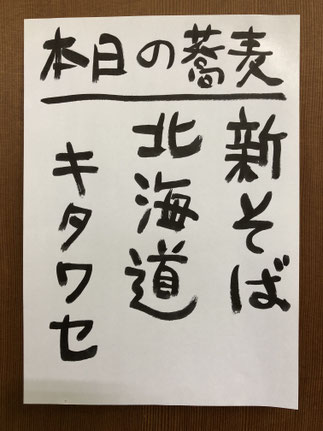 本日の蕎麦
新そば
北海道
キタワセ